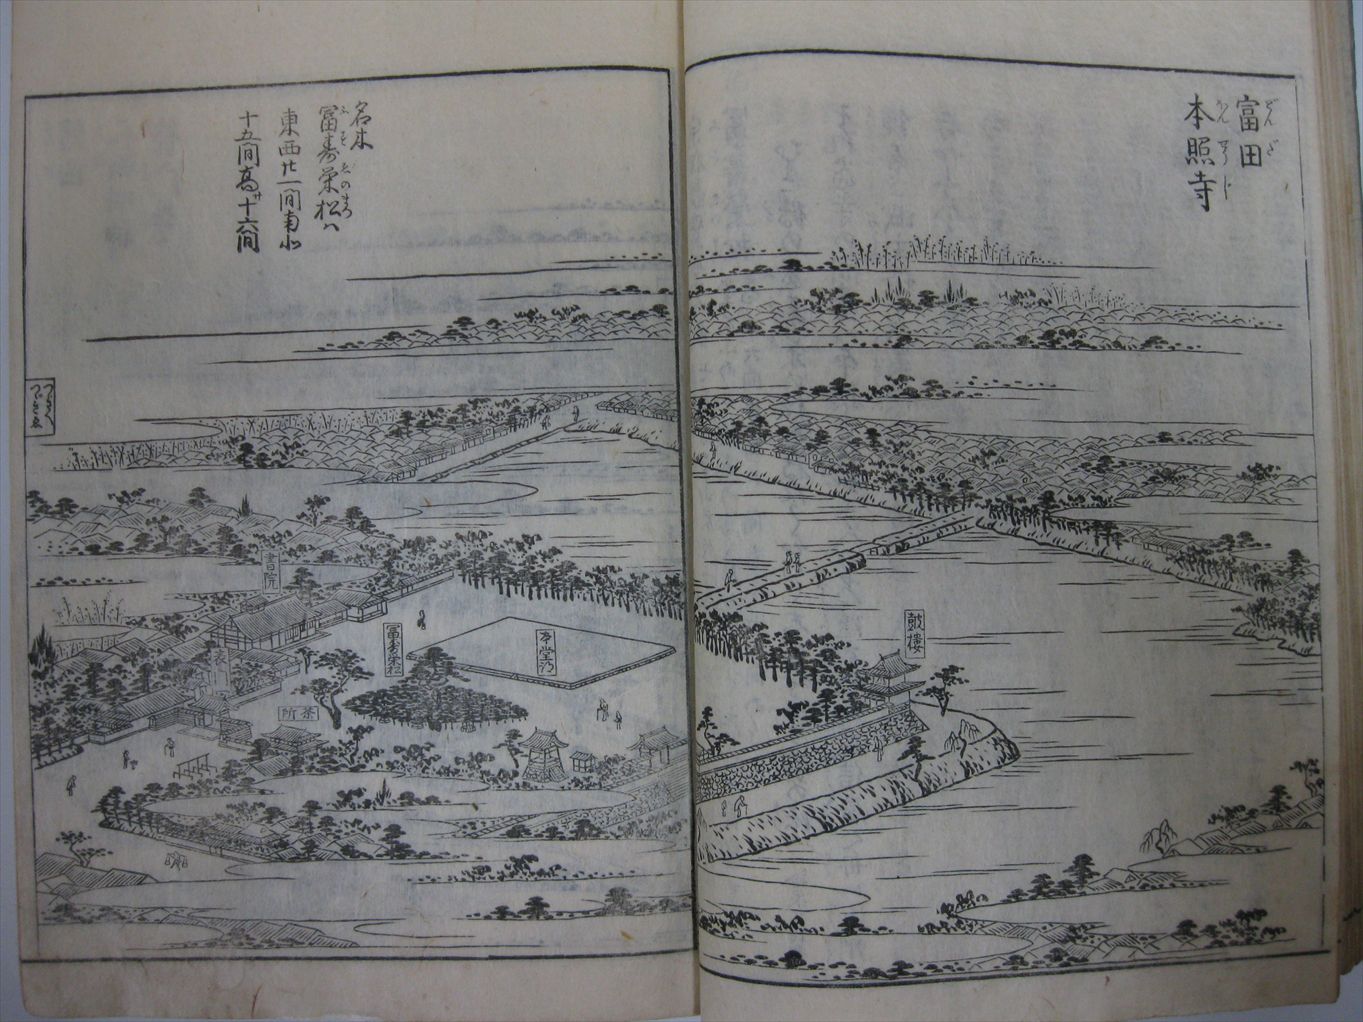 富田
本照寺
名木
富寿栄松ハ
東西廿一間南北
十五間高サ十六間
鼓楼
書院
本堂乃
富寿栄松
茶所